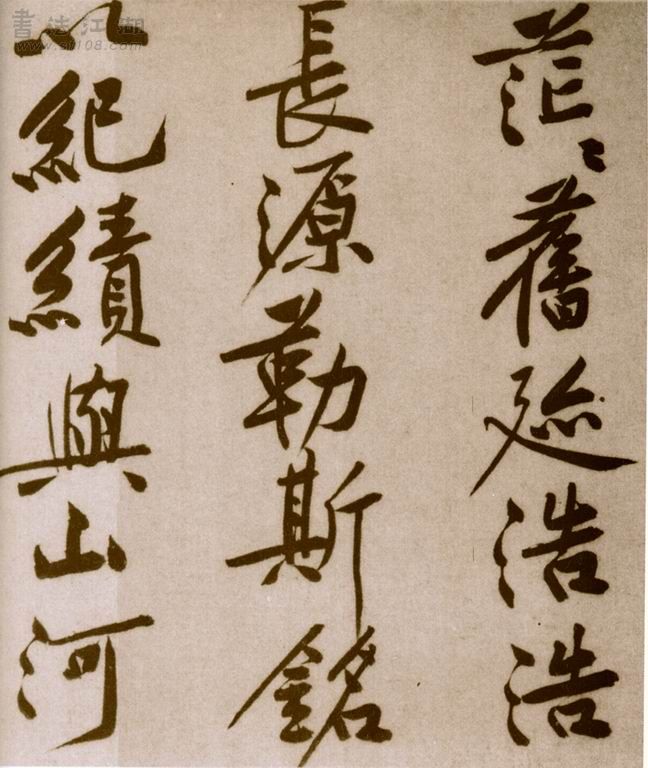 茫〻舊迹浩浩
長源勒斯銘
以紀績與山河
書法江湖
www.sf108.com